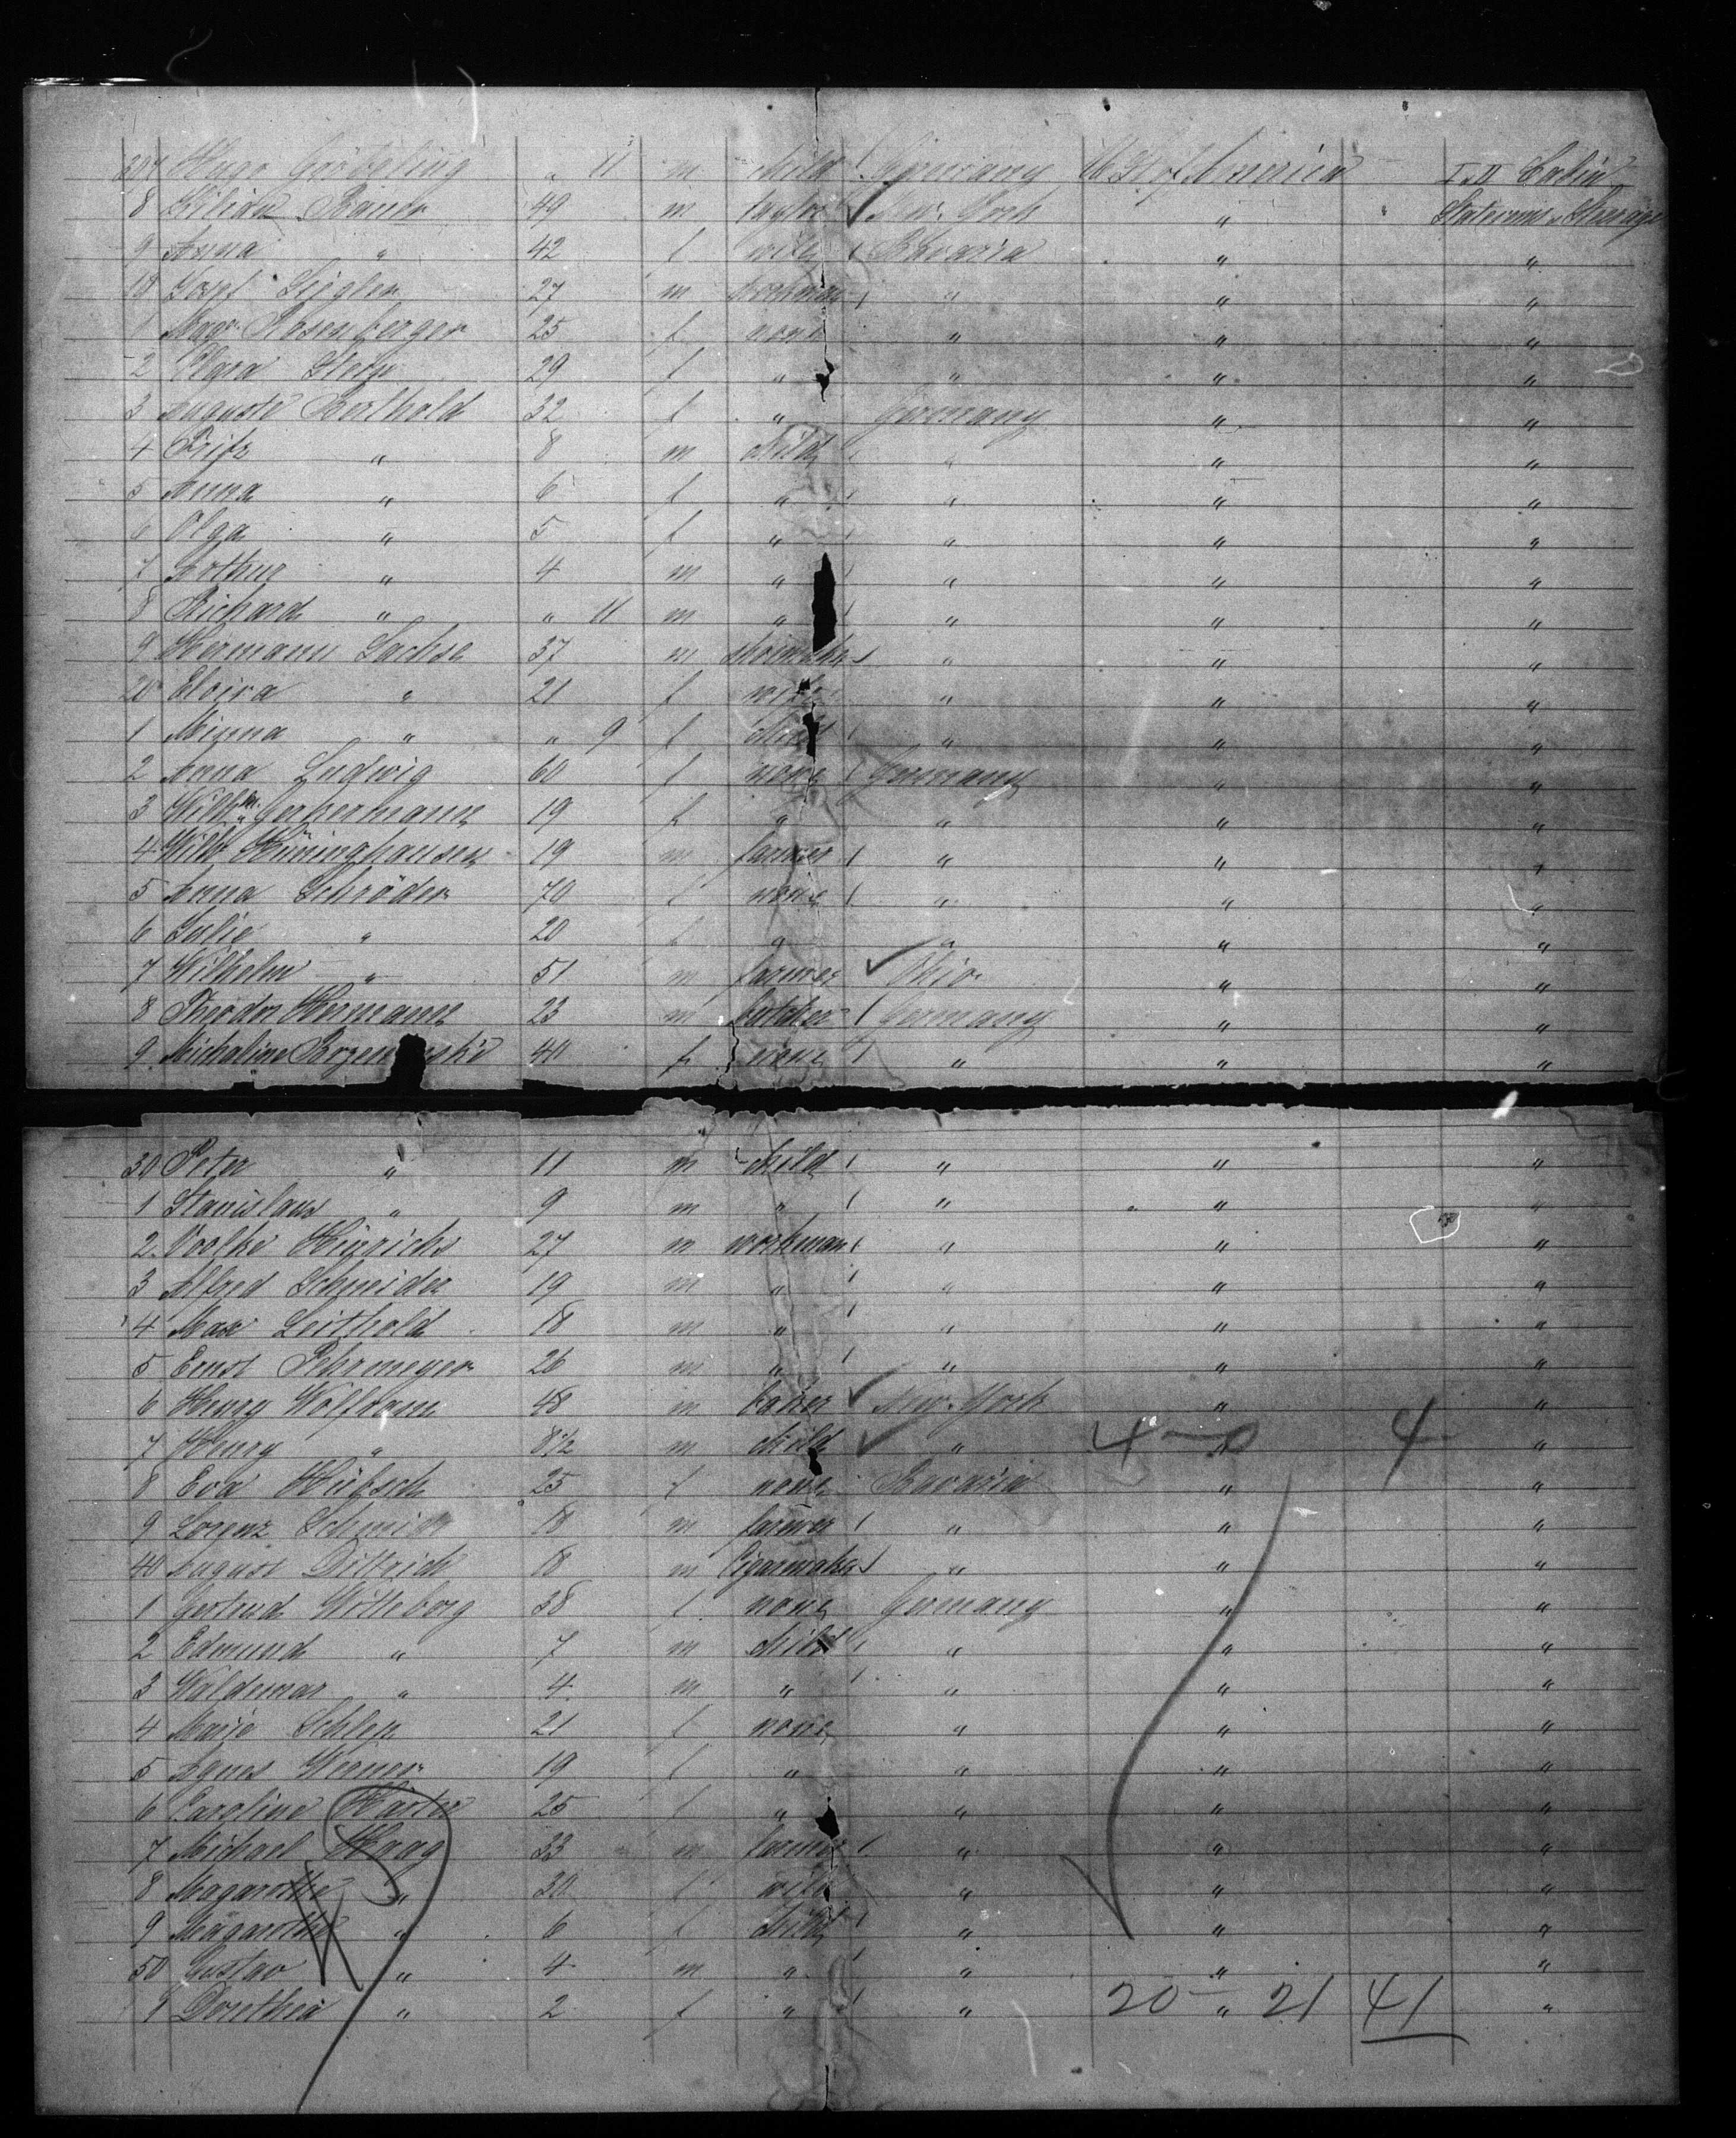 Hugo „ 11 m child Germany U St of America I. II Cabin
8 Kilian Bauer 49 m taylor New York „ Staterooms Steerage
9 Anna „ 42 f wife Bavaria „ „
10 Josef Ziegler 27 m workman „ „ „
1 Marg. Rosenberger 25 f none „ „ „
2 Clara 29 f „ „ „ „
3 Auguste Berthold 32 f „ Germany „ „
4 Fritz „ 8 m child „ „ „
5 Anna „ 6 f „ „ „ „
6 Olga „ 5 f „ „ „ „
7 Arthur „ 4 m „ „ „ „
8 Richard „ „ 11 m „ „ „ „
9 Hermann Sachse 37 m „ „ „
20 Elvira „ 21 f wife „ „ „
1 Minna „ „ 9 f child „ „ „
2 Anna Ludwig 60 f none Germany „ „
3 Wilhm. 19 f „ „ „ „
4 Wilh. Hüninghausen 19 m farmer „ „ „
5 Anna Schröder 70 f none „ „ „
6 Julie „ 20 f „ „ „ „
7 Wilhelm „ 51 m farmer Ohio „ „
8 Theodor Hermann 23 m butcher Germany „ „
9 Michaline 40 f none „ „ „
30 Peter „ 11 m child „ „ „
1 Stanislaus „ 9 m „ „ „ „
2 Hinrichs 27 m workman „ „ „
3 Alfred Schneider 19 m „ „ „ „
4 Max Leithold 18 m „ „ „ „
5 Ernst Fehrmeyer 26 m „ „ „ „
6 Henry Wolfram 48 m baker New York „ „
7 Henry „ 8½ m child „ 4 – 0 „ 4 „
8 Eva Hübsch 25 f none Bavaria „ „
9 Lorenz Schmidt 18 m farmer „ „ „
40 August Dittrich 18 m Cigarmaker „ „ „
1 Gertrud Witteborg 38 f none Germany „ „
2 Edmund „ 7 m child „ „ „
3 Waldemar „ 4 m „ „ „ „
4 Marie 21 f none „ „ „
5 Agnes Werner 19 f „ „ „ „
6 Caroline Harter 25 f „ „ „ „
7 Michael Haag 33 m farmer „ „ „
8 Magarethe „ 30 f wife „ „ „
9 Magarethe „ 6 f child „ „ „
50 Gustav „ 4 m „ „ „ „
1 Dorethea „ 2 f „ „ 20 – „ 21 41 „